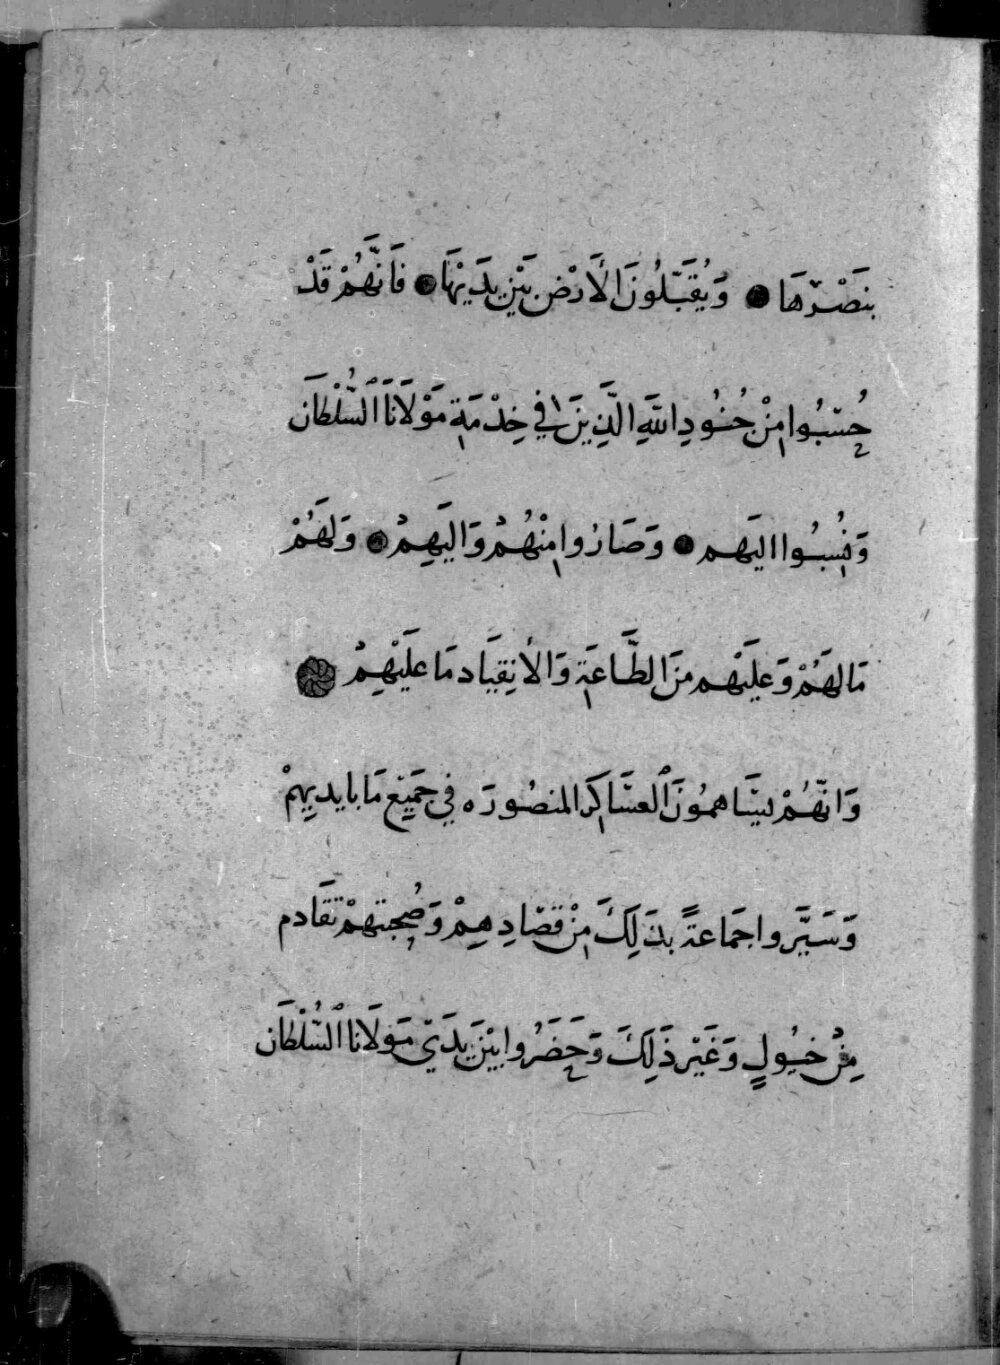 22
بنَصْرِهَا ● وَيُقَبِّلُونَ الْأَرْضَ بَيْنَ يَدَيْهَا ● فَانَّهُمْ قَدْ
حُسِبُوا مِنْ جُنُودِ اللَّهِ الَّذِينَ فِي خِدْمَةِ مَوْلَانَا السُّلْطَان
وَنُسِبُوا اليَهم ● وَصَارُوا مِنْهُمْ وَاليَهِمْ ● وَلَهُمْ
مَا لهَمُمْ وَعليَهْم مِنَ الطَّاعَةِ وَالأنِقيَاد مَا عَليَهْمِ
وَانَّهُمْ يسَاهمُونَ العسَاكِرَ المنصُورَه فِي جَميِع مَا بايديِهِمْ
وَسَيَّروا جَمَاعةً بذَلِكَ مِنْ قصّادِهِمْ وَصُحبتهمْ تقَادم
مِنْ خيُولٍ وَغَيْر ذَلِكَ وَحَضَرُوا بيْنَ يدَيّ مَولَانا السُّلْطَان